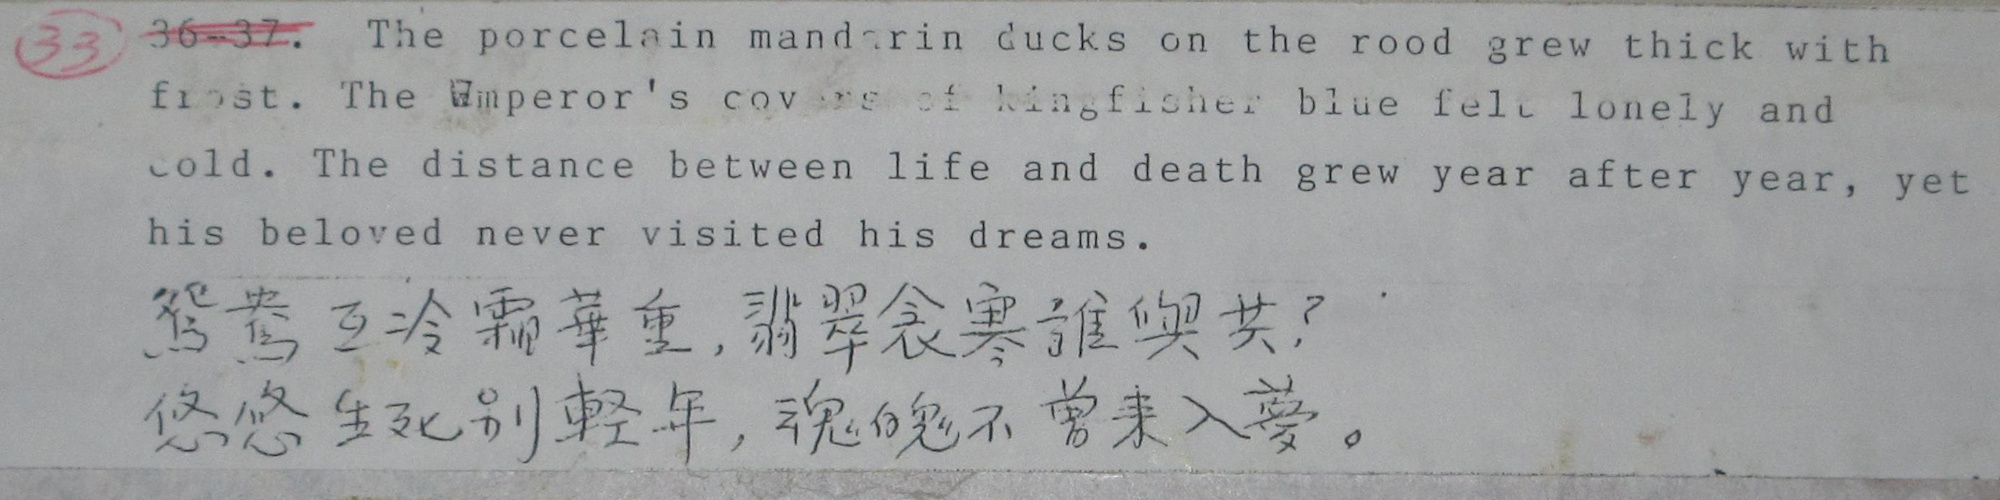 33 36-37. The porcelain mandarin ducks on the rood grew thick with
frost. The Emperor's covers of kingfisher blue felt lonely and
cold. The distance between life and death grew year after year, yet
his beloved never visited his dreams.
鴛鴦互冷霜華重,翡翠衾寒誰與共?
悠悠生死別輕年,魂魄不曾来入夢。